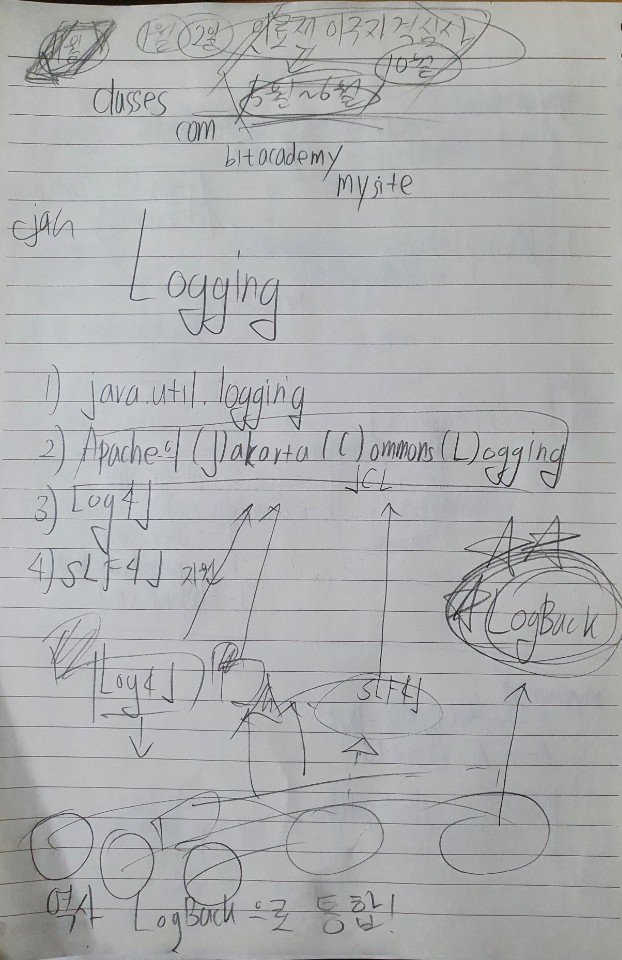 1월 2월 의료진 이구지 걱심사
10월
5월~6월
classes
com
bitacademy
mysite
Logging
1) java.util.logging
2) Apache의 (J)akarta (C)ommons (L)ogging
JCL
3) Log4J
4) SLF4J 지원
LogBack
Log4J
SLF4J
역사 LogBack으로 통합!